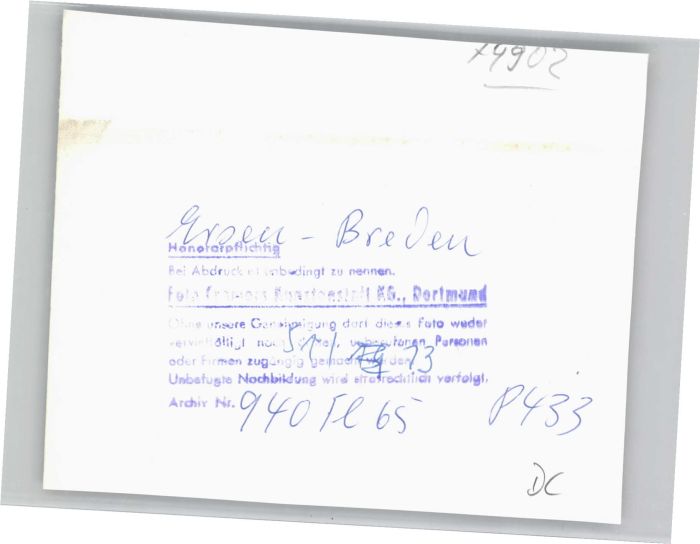 x4902
- Breden
Honorarpflichtig
Bei Abdruck ist unbedingt zu nennen.
Foto Cramers Kunstanstalt KG., Dortmund
Ohne unsere Genehmigung darf dieses Foto weder
vervielfältigt noch dritten, unberufenen Personen
oder Firmen zugängig gemacht werden.
51/ 13
Unbefugte Nachbildung wird strafrechtlich verfolgt.
Archiv Nr. 940 Fl 65
P433
DC